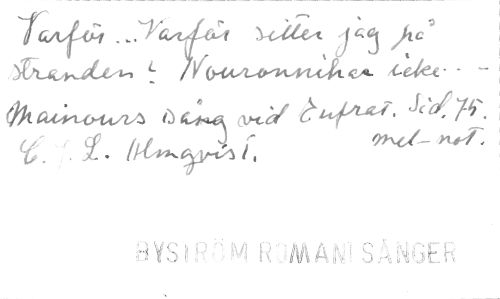 Varför... Varför sitter jag på
stranden? Nouronnihar icke.. -
Mainours sång vid Eufrat. Sid. 75.
C. J. L. Almqvist. mel-not.
BYSTRÖM ROMANI SÅNGER